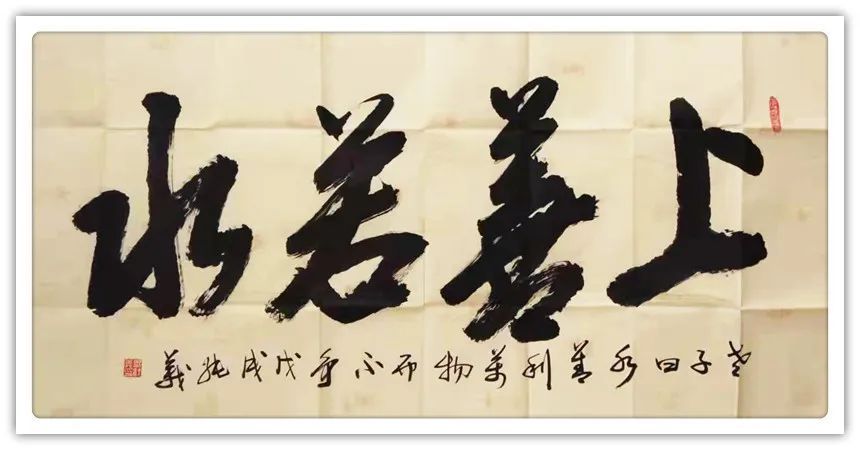 上善若水
老子曰水善利萬物而不争戊戌義